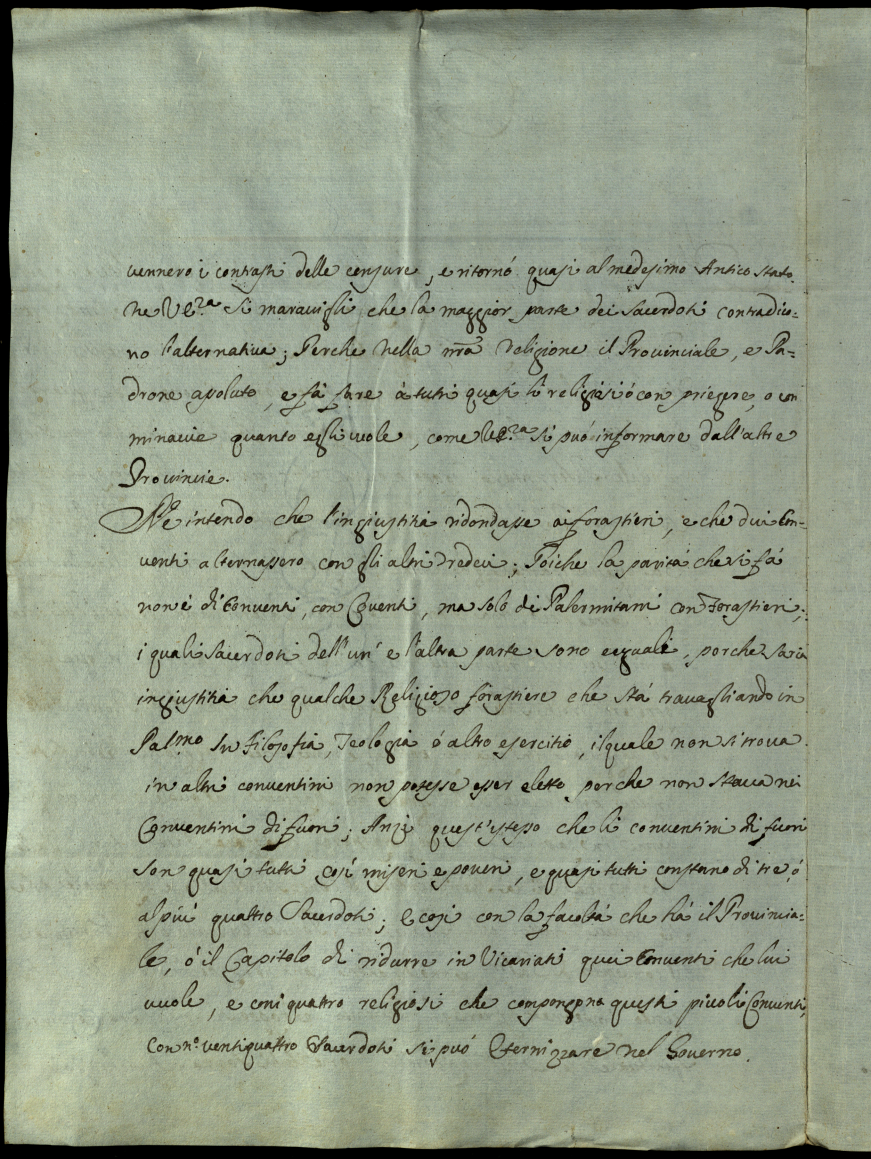 vennero i contrasti delle censure, e ritornó quasi al medesimo Antico stato.
Ne V E.za si maravigli che la maggior parte dei Sacerdoti contradico=
no l'alternativa; Perche nella nrã Religione il Provinciale, e Pa=
drone assoluto, e fá fare á tutti quasi li religiosi ó con priegere, o con
minaccie quanto egli vuole, come V E.za si puó informare dall'altre
Provincie.
Ne intendo che l'ingiustitia ridondasse ai forastieri, e che dui Con=
venti alternassero con gli altri dredeci; Poiche la paritá che si fá
non é di Conventi, con Coventi, ma solo di Palermitani con Forastieri;
i quali Sacerdoti dell'un' e l'altra parte sono eequali, perche saria
ingiustitia che qualche Religioso forastiere che stá travagliando in
Pal.mo In Filosofia, Teologia ó altro esercitio, il quale non si trova
in altri conventini non potesse esser eletto perche non stava nei
Conventini di fuori; Anzi quest'istesso che li conventini di fuori
son quasi tutti cosi miseri e poveri, e quasi tutti constano di tre, ó
al piú quattro Sacerdoti; E cosi con la facoltá che há il Provincia=
le, ó il Capitolo di ridurre in Vicariati quei Conventi che lui
vuole, e con i quattro religiosi che compongono questi piccoli Conventi,
Con n.º ventiquattro Sacerdoti si puó Eternizzare nel Governo.